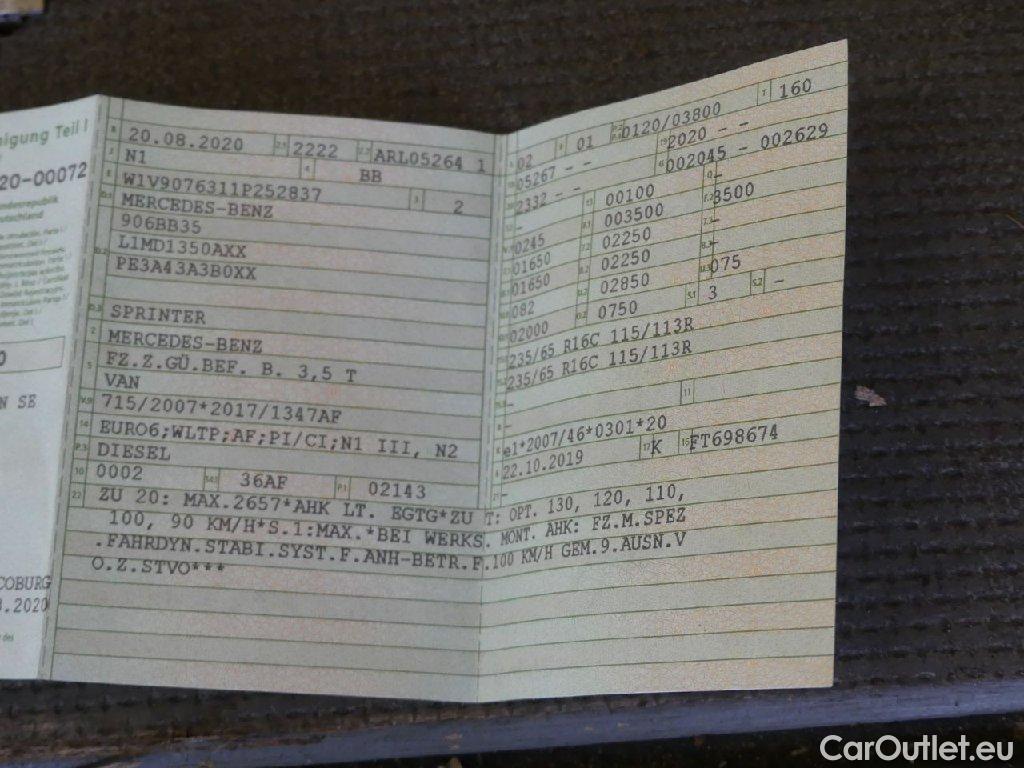 nigung Teil I
20-00072
N SE
COBURG
.2020
20.08.2020 2222 ARL05264 1
N1 BB
W1V9076311P252837 2
MERCEDES-BENZ
906BB35
L1MD1350AXX
PE3A43A3B0XX
SPRINTER
MERCEDES-BENZ
FZ.Z.GÜ.BEF. B. 3,5 T
VAN
715/2007*2017/1347AF
EURO6;WLTP;AF;PI/CI;N1 III, N2
DIESEL
0002 36AF 02143
02 01 0120/03800 160
05267 - - 2020 - -
2332 - - 002045 - 002629
- 00100 -
0245 003500 3500
01650 02250 -
01650 02250 -
082 02850 075
02000 0750 3 -
235/65 R16C 115/113R
235/65 R16C 115/113R
-
-
e1*2007/46*0301*20
22.10.2019 K FT698674
-
ZU 20: MAX.2657*AHK LT. EGTG*ZU T: OPT. 130, 120, 110,
100, 90 KM/H*S.1:MAX.*BEI WERKS. MONT. AHK: FZ.M.SPEZ
.FAHRDYN.STABI.SYST.F.ANH-BETR.F.100 KM/H GEM.9.AUSN.V
O.Z.STVO***
CarOutlet.eu